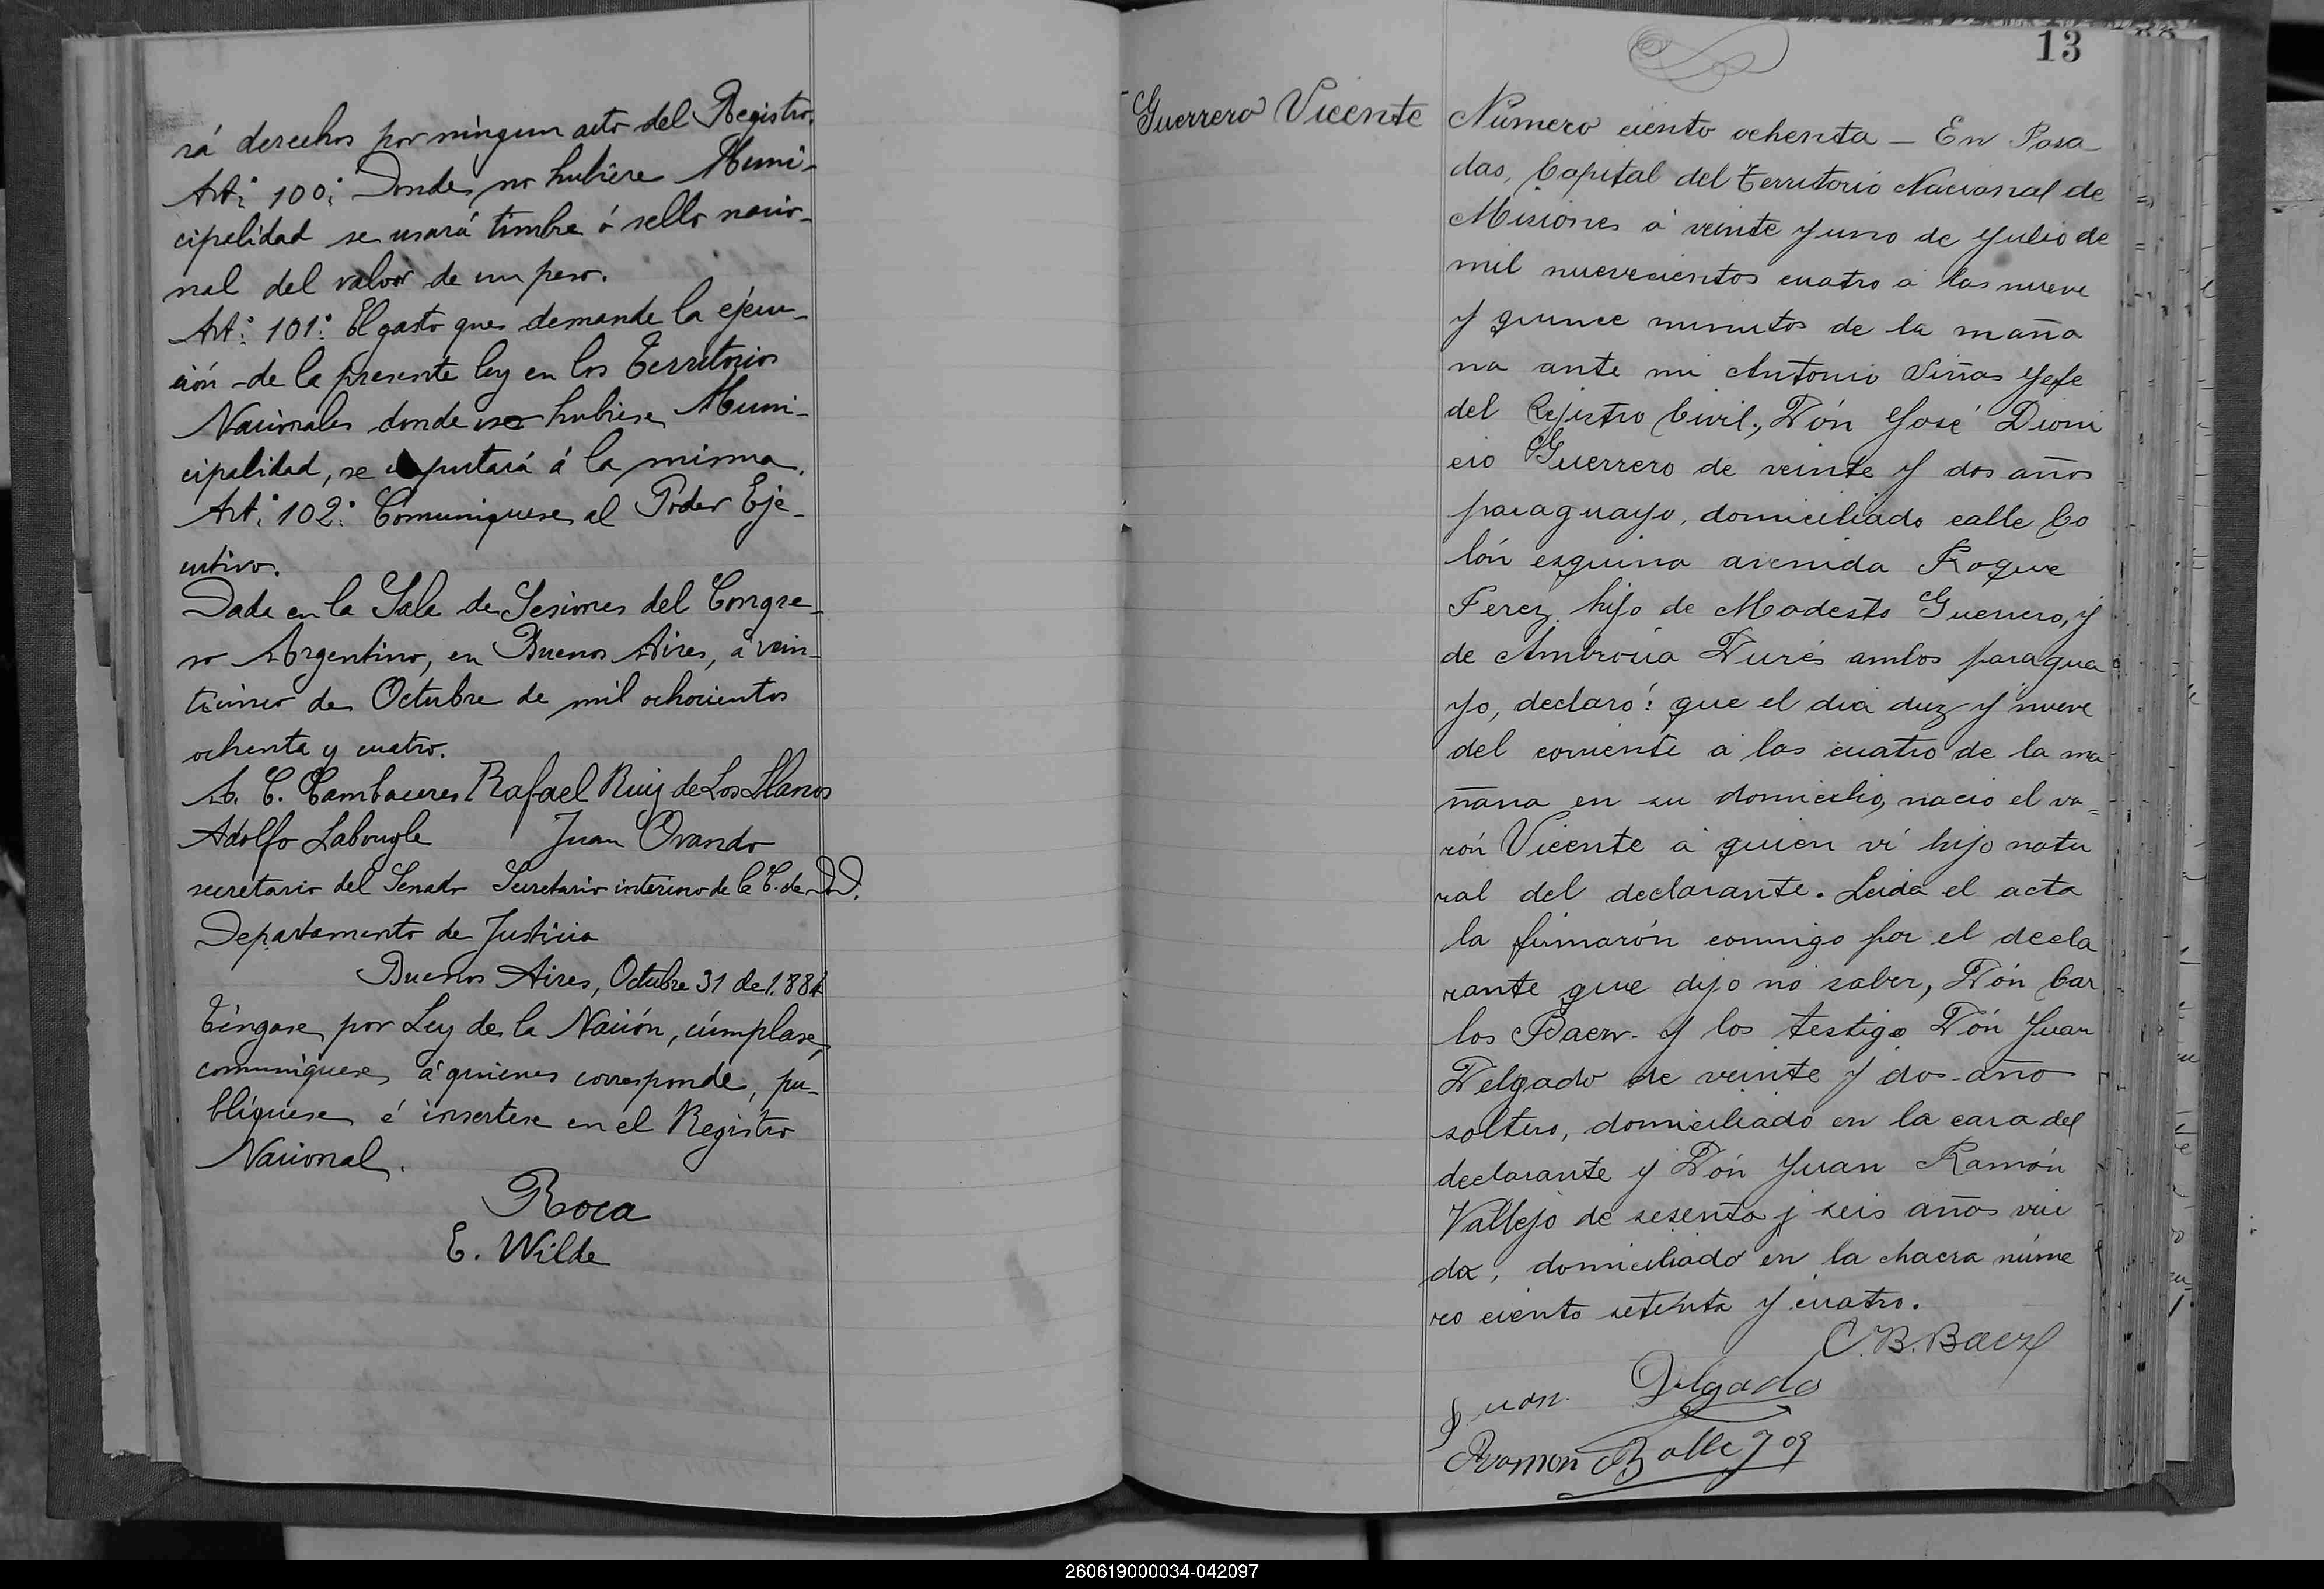 rá derechos por ningun acto del Registro.
Art.º 100.º Donde no hubiere Muni-
cipalidad se usará timbre ó sello nacio-
nal del valor de un peso.
Art.º 101.º El gasto que demande la ejecu-
ción de la presente ley en los Territorios
Nacionales donde no hubiese Muni-
cipalidad, se imputará á la misma.
Art.º 102.º Comuniquese al Poder Eje-
cutivo.
Dada en la Sala de Sesiones del Congre-
so Argentino, en Buenos Aires, á vein-
ticinco de Octubre de mil ochocientos
ochenta y cuatro.
A. C. Cambaceres Rafael Ruiz de Los Llanos
Adolfo Labougle Juan Ovando
secretario del Senado Secretario interino de la C. de DD.
Departamento de Justicia
Buenos Aires, Octubre 31 de 1.884
Téngase por Ley de la Nación, cúmplase,
comuníquese á quienes corresponde, pu-
blíquese é insertese en el Registro
Nacional.
Roca
E. Wilde
13
Guerrero Vicente
Número ciento ochenta — En Posa
das, Capital del Territorio Nacional de
Misiones á veinte y uno de Julio de
mil nuevecientos cuatro á las nueve
y quince minutos de la maña
na ante mi Antonio Viñas Jefe
del Rejistro Civil, Dón José Dioni
cio Guerrero de veinte y dos años
paraguayo, domiciliado calle Co
lón esquina avenida Roque
Perez hijo de Modesto Guerrero, y
de Ambrosia Durés ambos paragua
yo, declaró: que el dia diez y nueve
del corriente á las cuatro de la ma-
ñana en su domicilio, nació el va=
rón Vicente á quien ví hijo natu
ral del declarante. Leida el acta
la firmarón conmigo por el decla
rante que dijo no saber, Dón Car
los Baez y los testigo Dón Juan
Delgado de veinte y dos año
soltero, domiciliado en la casa del
declarante y Dón Juan Ramón
Vallejo de sesenta y seis años viu
do, domiciliado en la chacra núme
ro ciento setenta y cuatro.
C. B. Baez
Juan Delgado
Ramon Ballejos
260619000034-042097